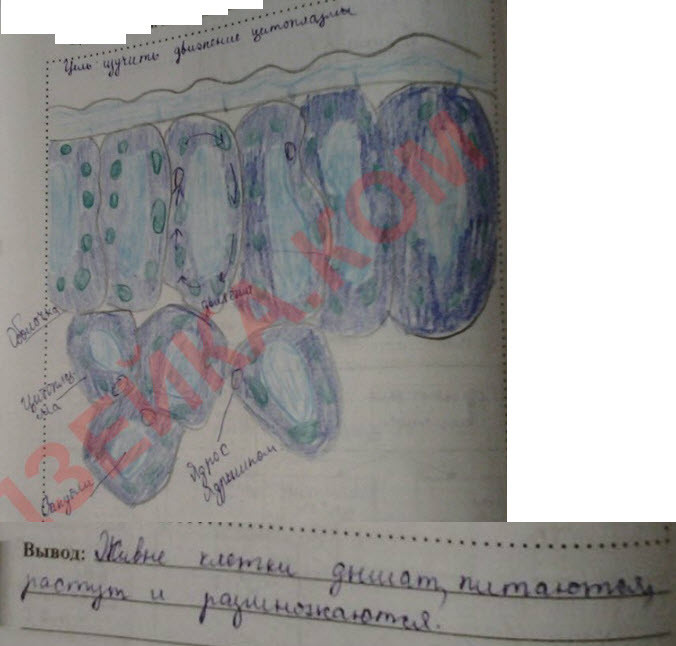 Цель: изучить движение цитоплазмы
движение
Оболочка
Цитоплаз-
ма
Вакуоли
Ядро с
ядрышком
13ЕЙКА.КОМ
Вывод: Живне клетки дышат, питаются,
растут и размножаются.